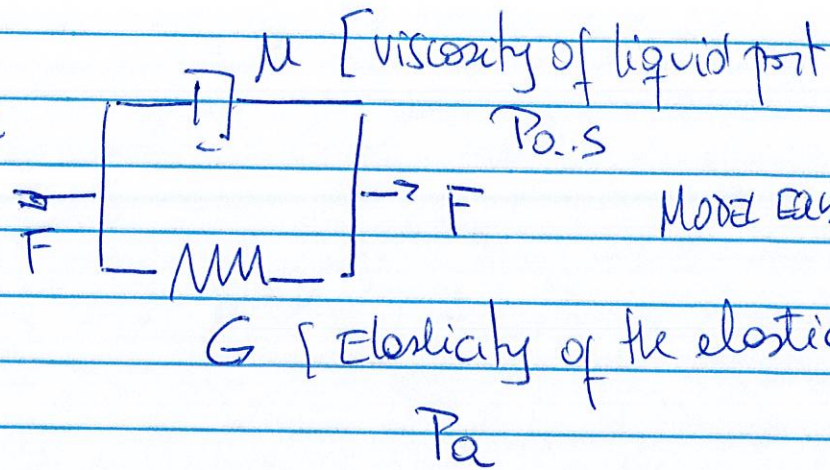 μ [viscosity of liquid part
Pa.s
F
F
MODEL EQU
G [Elasticity of the elastic
Pa